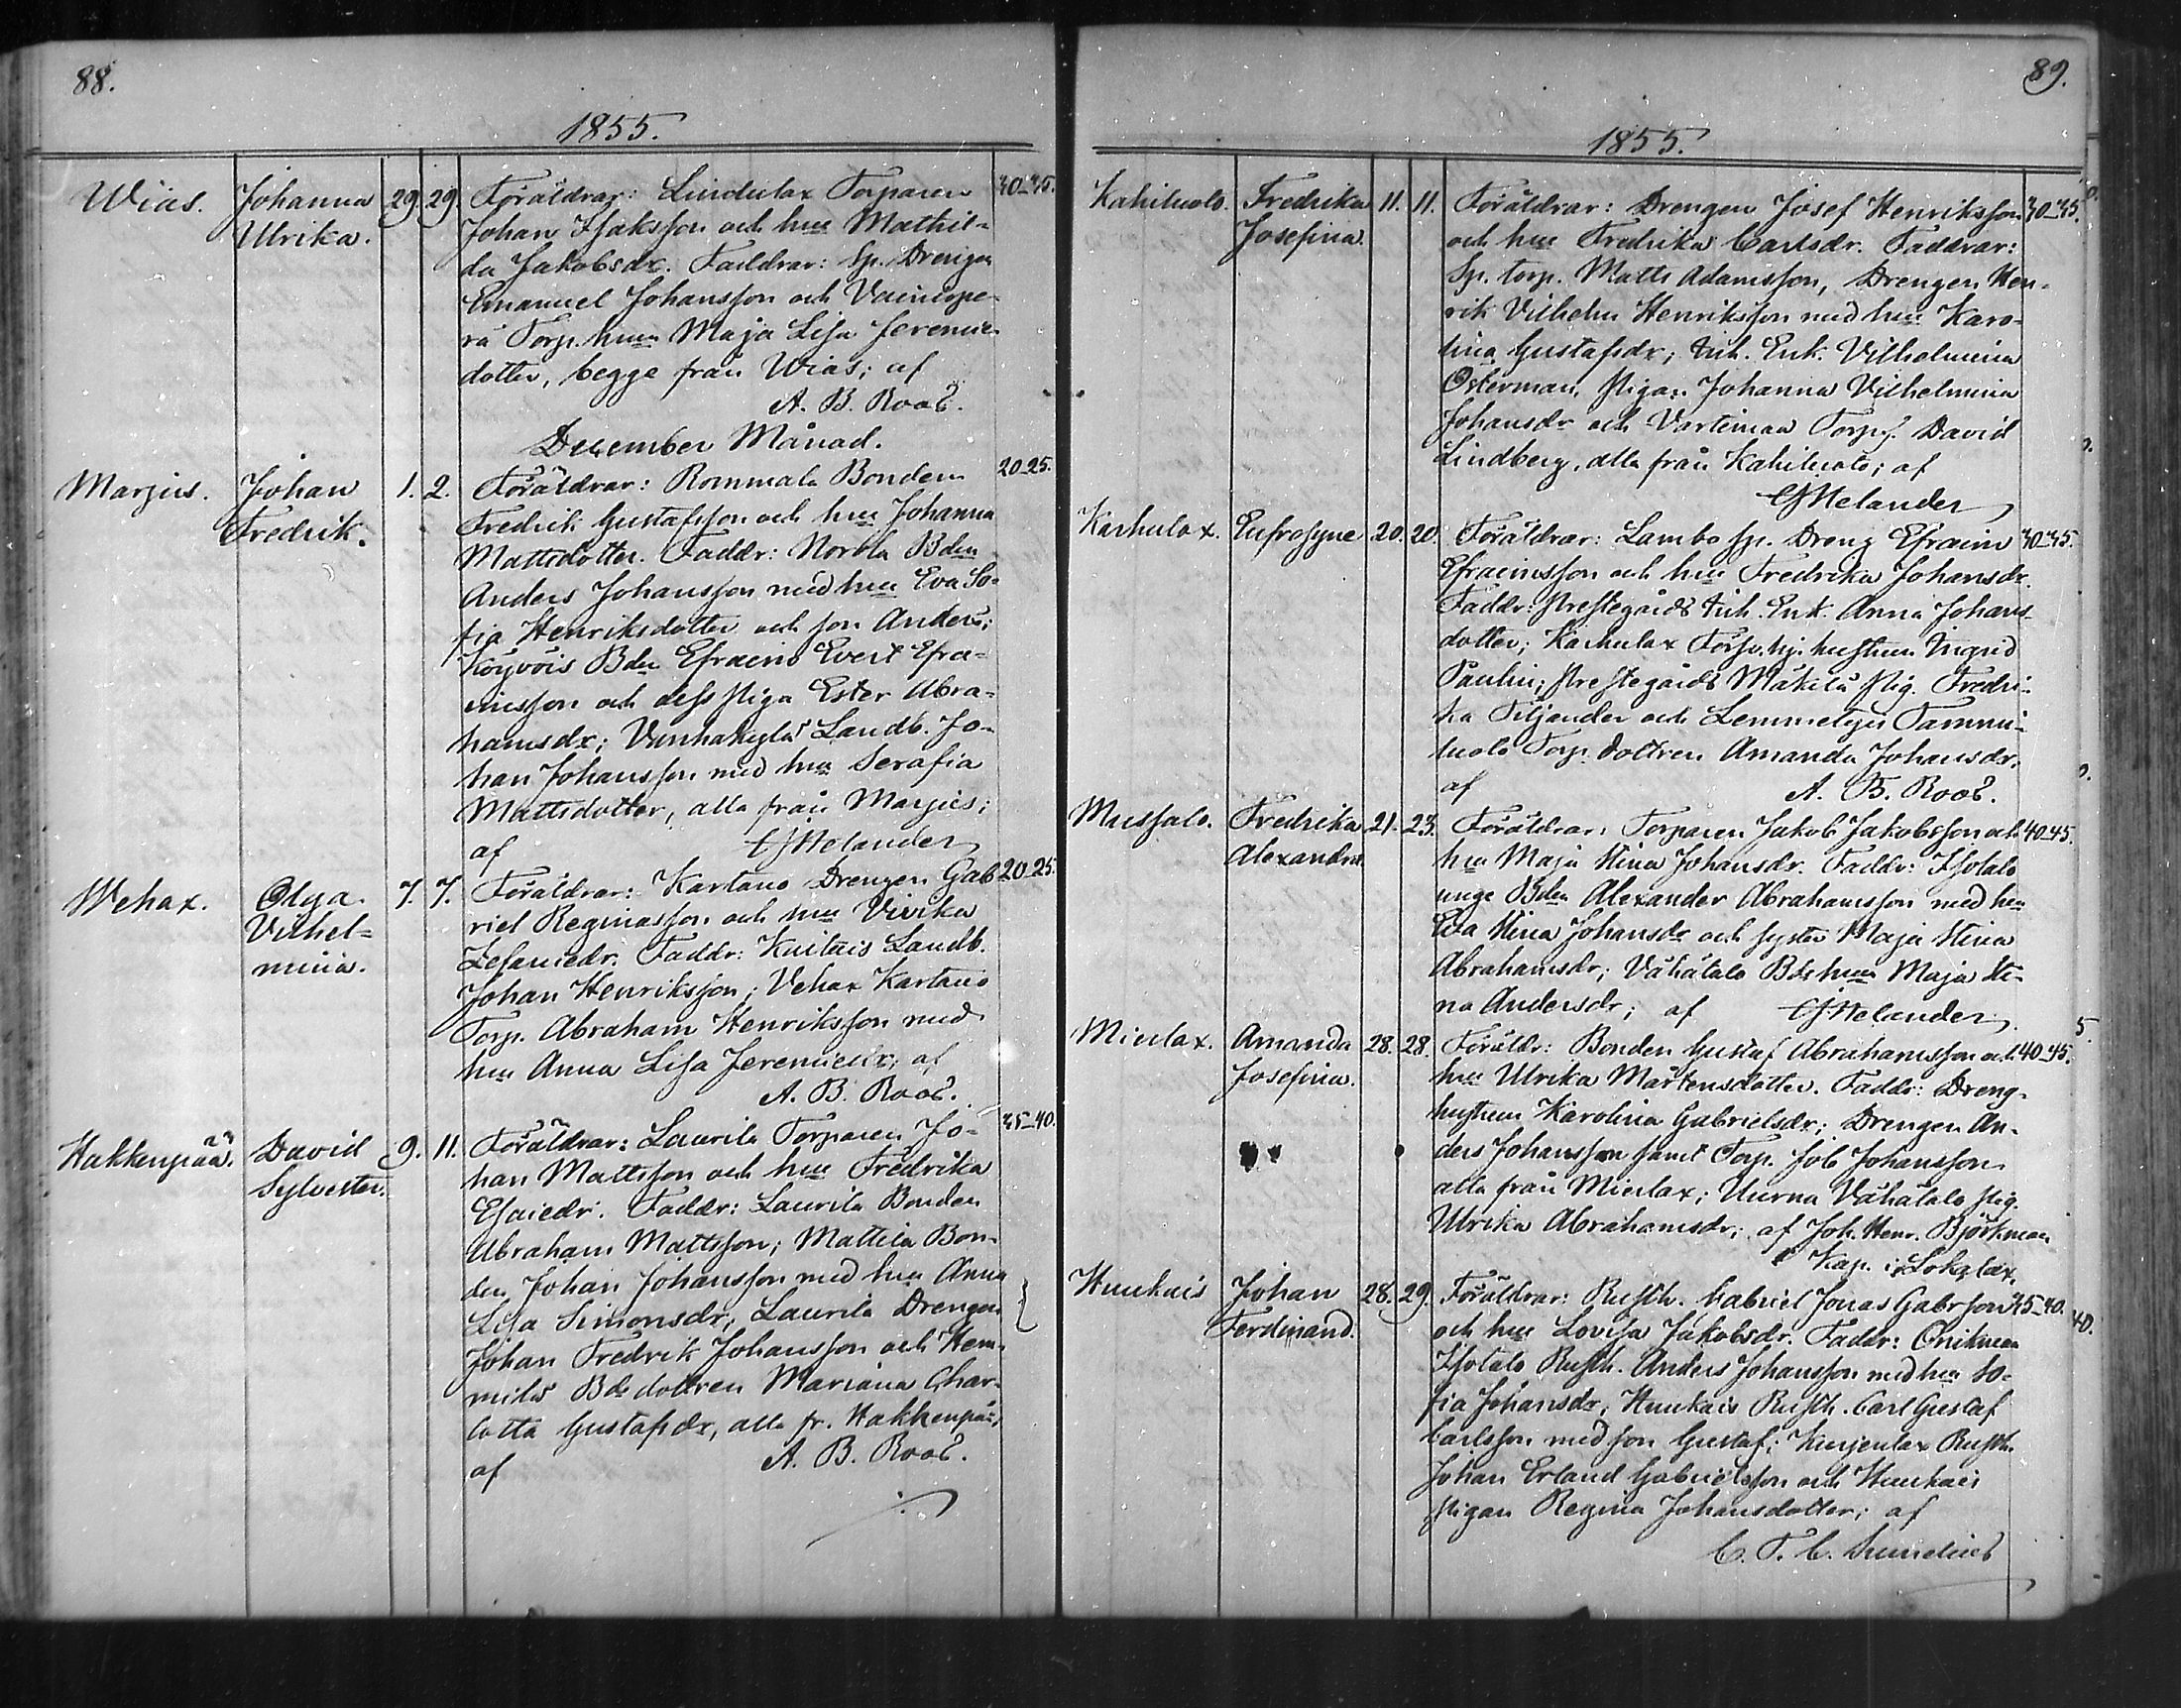 88.
1855.
Wias. Johanna 29. 29. Föräldrar: Lindulax Torparen 40-45.
Ulrika. Johan Isaksson och hu Mathil-
da Jakobsdr. Faddrar: Sp. Drengen
Emanuel Johansson och Vainiope-
rä Torp. hun Maja Lisa Jeremie
dotter, begge från Wias; af
A. B. Roos.
December Månad.
Marjus. Johan 1. 2. Föräldrar: Rommala Bonden 20-25.
Fredrik. Fredrik Gustafsson och hu Johanna
Mattsdotter. Faddr: Norrla Bden
Anders Johansson med hu Eva So-
fia Henriksdotter och son Anders;
Köyvöis Bden Efraim Evert Efra-
imsson och dess piga Ester Abra-
hamsdr; Vanhakylä Landb. Jo-
han Johansson med hu Serafia
Mattsdotter, alla från Marjus;
af CJMelander
Wehax. Olga 7. 7. Föräldrar: Kartano Drengen Gab 20-25.
Vilhel- riel Reginasson och hu Viika
mina. Zefaniedr. Faddr: Knitais Landb.
Johan Henriksson; Vehax Kartano
Torp. Abraham Henriksson med
hu Anna Lisa Jeremiedr; af
A. B. Roos.
Hakkenpää. David 9. 11. Föräldrar: Laurila Torparen Jo- 35-40.
Sylvester. han Mattsson och hu Fredrika
Esaiedr. Faddr: Laurila Bonden
Abraham Mattsson; Mattila Bon-
den Johan Johansson med hu Anna
Lisa Simonsdr, Laurila Drengen
Johan Fredrik Johansson och Hem-
milä Bde dottren Mariana Char-
lotta Gustafsdr, alla fr. Hakkenpää;
af A. B. Roos.
89.
1855.
Kahiluoto. Fredrika 11. 11. Föräldrar: Drengen Josef Henriksson 40-45.
Josefina. och hu Fredrika Carlsdr. Faddrar:
Sp. torp. Matts Adamsson, Drengen Hen-
rik Vilhelm Henriksson med hu Karo-
lina Gustafsdr; Inh. Enk. Vilhelmina
Österman, Pigan Johanna Vilhelmina
Johansdr och Vartiman Torps. David
Lindberg, alla från Kahiluoto; af
CJMelander
Karhulax. Eufrosyne 20. 20. Föräldrar: Lambo sp. Dreng Efraim 40-45.
Efraimsson och hu Fredrika Johansdr.
Faddr: Prestegårds Inh. Enk. Anna Johans-
dotter; Karhulax hustrun Ingrid
Paulin; Prestegårds Mäkilä Pig. Fredri-
ka Filjander och Lemmetyis Tammi-
luoto Torp. dottren Amanda Johansdr.
af A. B. Roos.
Mussalo. Fredrika 21. 23. Föräldrar: Torparen Jakob Jakobsson och 40-45.
Alexandra. hu Maja Stina Johansdr. Faddr: Isotalo
unge Bden Alexander Abrahamsson med hu
Eva Stina Johansdr och syster Maja Stina
Abrahamsdr; Vähätalo Bde hun Maja Sti-
na Andersdr; af CJMelander
Mieslax. Amanda 28. 28. Föräldr: Bonden Gustaf Abrahamsson och 40-45.
Josefina. hu Ulrika Mårtensdotter. Faddr: Dreng-
hustrun Karolina Gabrielsdr; Drengen An-
ders Johansson samt Torp. Job Johansson
alla från Mieslax; Uurna Vähätalo pig.
Ulrika Abrahamsdr; af Joh. Henr. Björkman
Kap. i Lokalax.
Huukais Johan 28. 29. Föräldrar: Rusth. Gabriel Jonas Gabrsson 35-40.
Ferdinand. och hu Lovisa Jakobsdr. Faddr:
Isotalo Rusth. Anders Johansson med hu So-
fia Johansdr, Huukais Rusth. Carl Gustaf
Carlsson med son Gustaf; Kurjenlax Rusth.
Johan Erland Gabrielsson och Huukais
Pigan Regina Johansdotter; af
C. F. C. Sundius